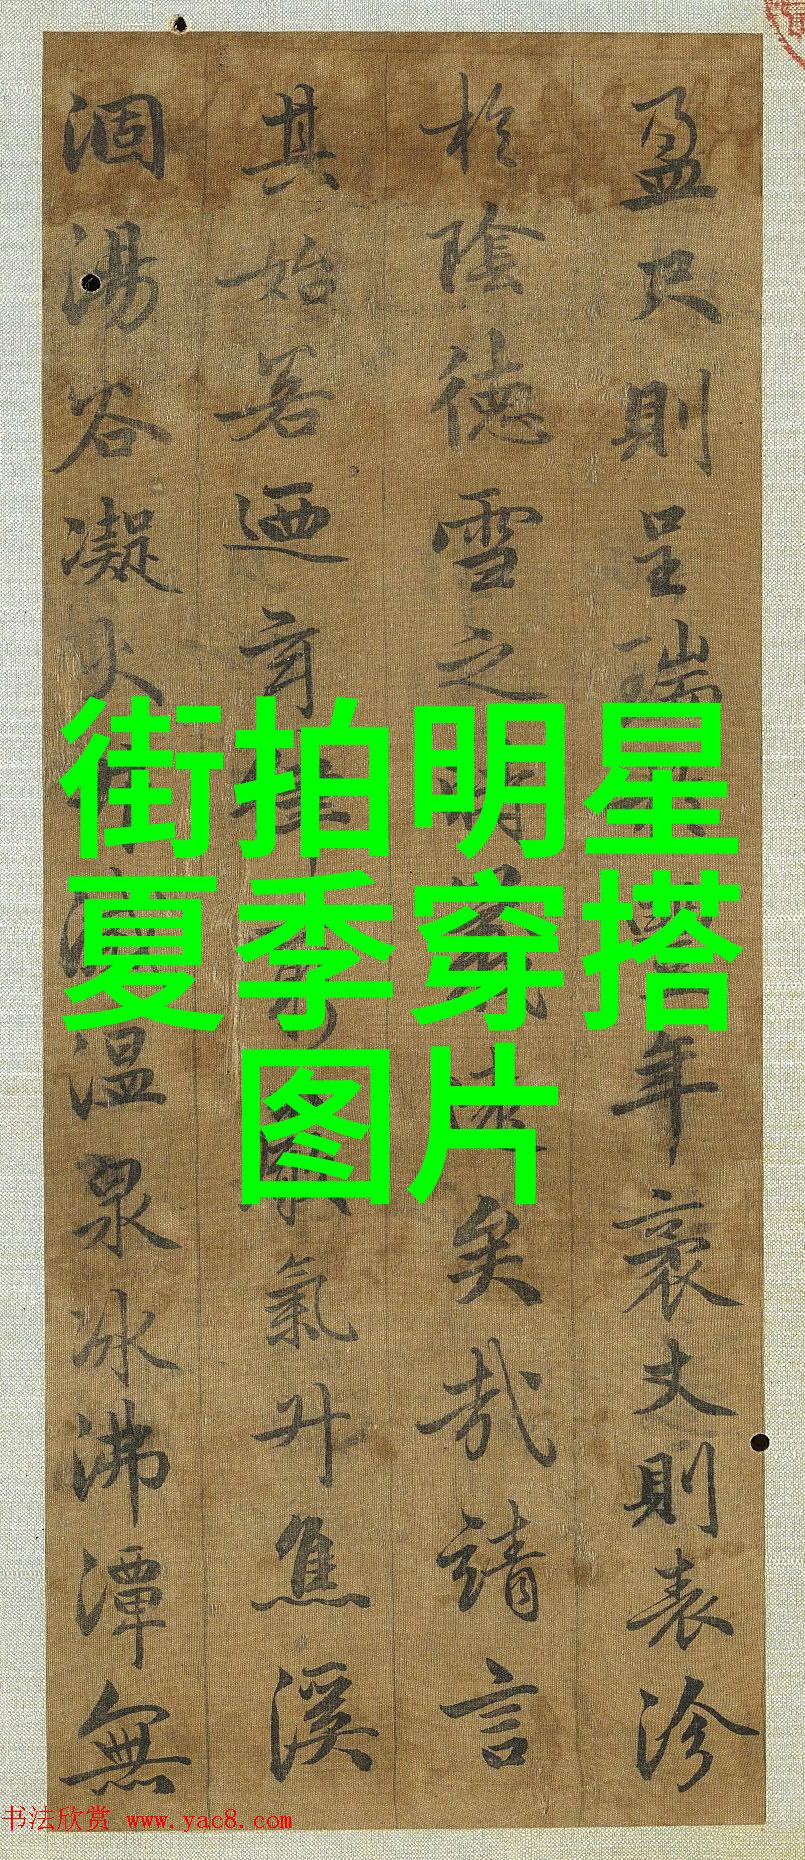 盈尺則呈瑞豐年袤丈則表沴
於陰德雪之時義遠矣哉請言
其始若迺玄律氣升焦溪
涸湯谷凝火溫泉冰沸潭無
街拍明星
夏季穿搭
图片
书法欣赏 www.yac8.com